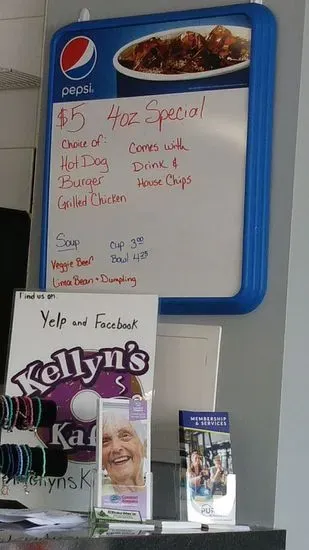 pepsi.
$5 4oz Special
Choice of: Comes with
Hot Dog Drink &
Burger House Chips
Grilled Chicken
Soup Cup 3.00
Veggie Beef Bowl 4.25
Lima Bean + Dumpling
Find us on:
Yelp and Facebook
Kellyn's
MEMBERSHIP
& SERVICES